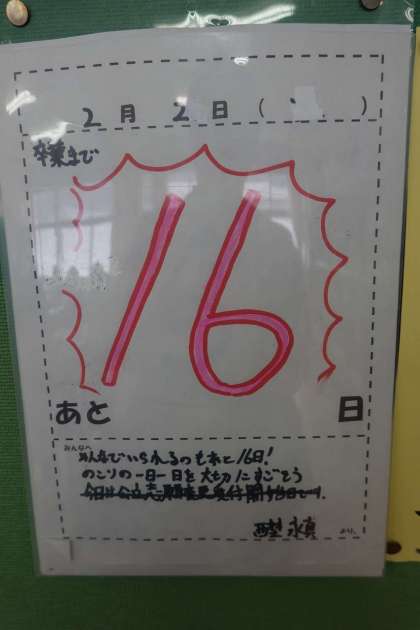 2月2日( )
卒業まで
16
あと 日
みんなへ
みんなでいられるのもあと16日!
のこりの一日一日を大切にすごそう
より